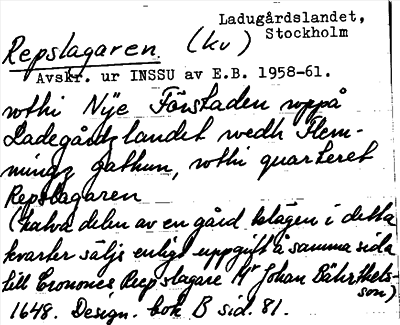 Ladugårdslandet,
Stockholm
Repslagaren. (kv)
Avskr. ur INSSU av E.B. 1958-61.
wthi Nÿe Förstaden uppå
Ladegårdzlandet wedh Flem-
mingz gathun, wthi quarteret
Repslagaren
(halva delen av en gård belägen i detta
kvarter säljs enligt uppgift å samma sida
till Cronones Reepslagare Mr Johan
son)
1648. Design. bok B sid. 81.